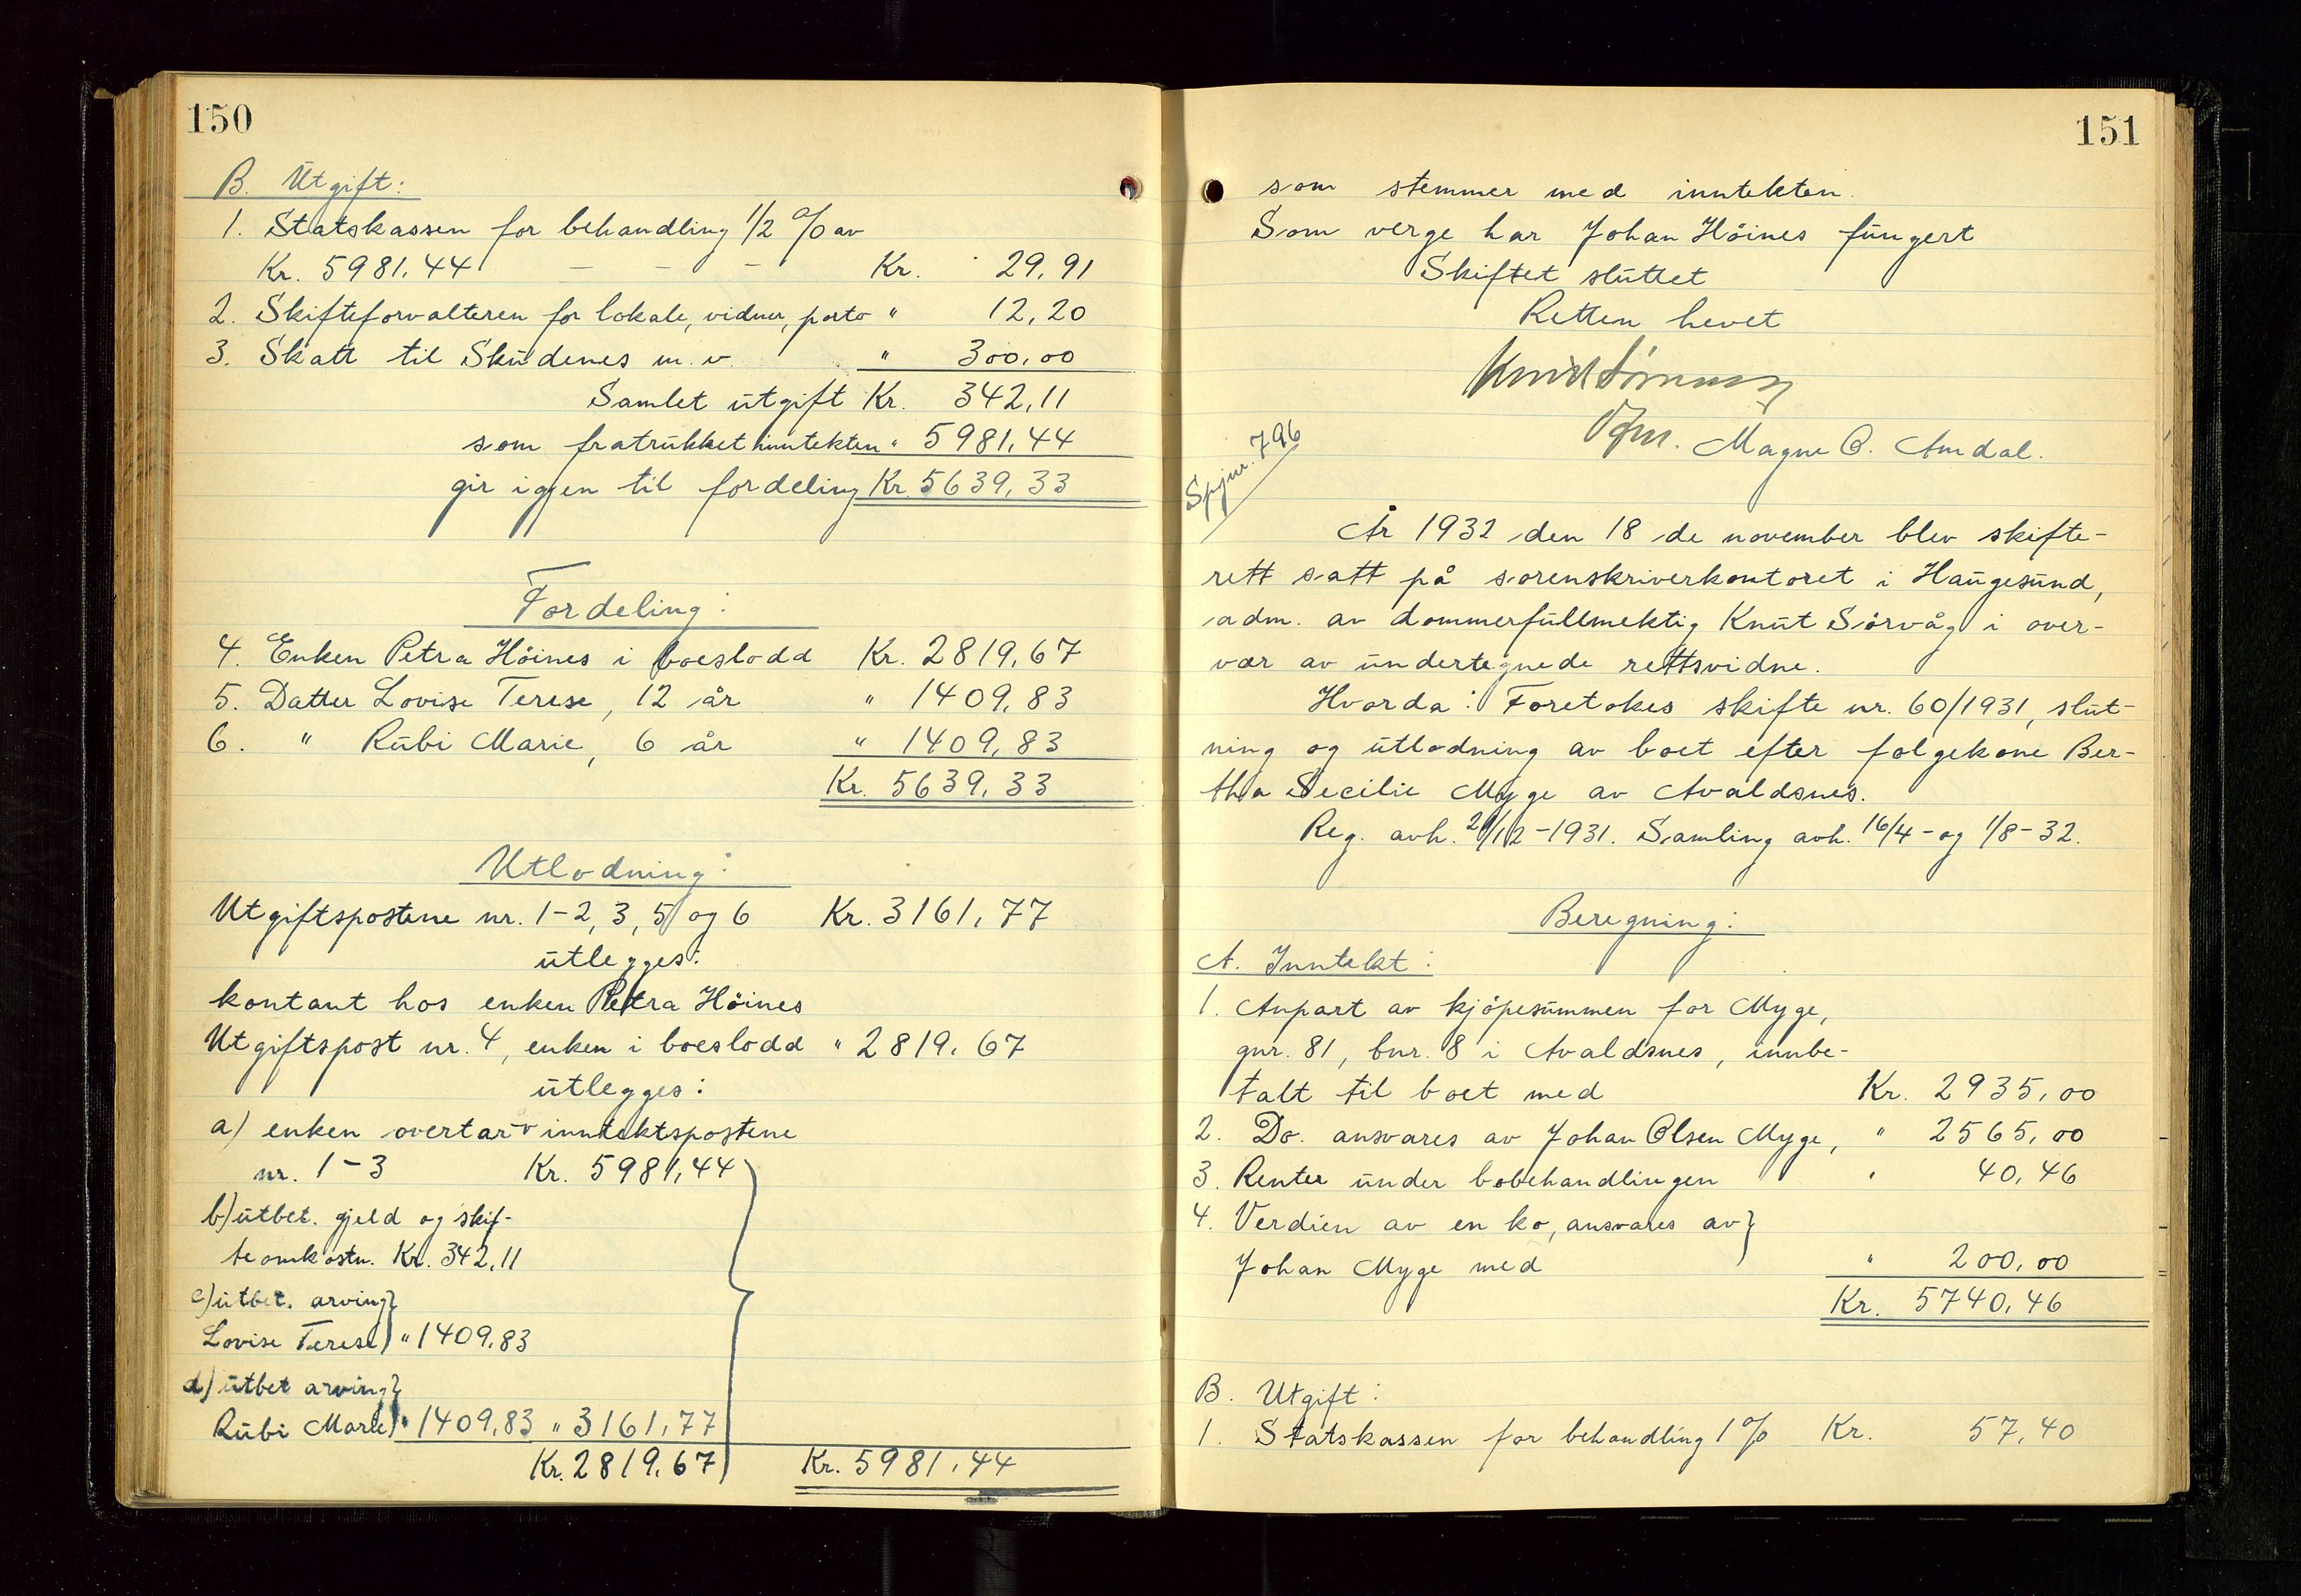 150
B. Utgift:
1. Statskassen for behandling 1/2 % av
Kr. 5981,44 - - - Kr. 29,91
2. Skifteforvalteren for lokale, vidner, porto " 12,20
3. Skatt til Skudenes m.v. " 300,00
Samlet utgift Kr. 342,11
som fratrukket inntekten " 5981,44
gir igjen til fordeling Kr. 5639,33
Fordeling:
4. Enken Petra Höines i boeslodd Kr. 2819,67
5. Datter Lovise Terese, 12 år " 1409,83
6. " Rubi Marie, 6 år " 1409,83
Kr. 5639,33
Utlodning:
Utgiftspostene nr. 1-2, 3, 5 og 6 Kr. 3161,77
utlegges:
kontant hos enken Petra Höines
Utgiftspost nr. 4, enken i boeslodd " 2819,67
utlegges:
a) enken overtar inntektspostene
nr. 1-3 Kr. 5981,44
b) utbet. gjeld og skif-
teomkostn. Kr. 342,11
c) utbet. arving
Lovise Terese " 1409,83
d) utbet arving
Rubi Marie " 1409,83 " 3161,77
Kr. 2819,67 Kr. 5981,44
151
som stemmer med inntekten.
Som verge har Johan Höines fungert
Skiftet sluttet
Retten hevet
Magne O. Amdal.
Spjnr. 796
År 1932 den 18 de november blev skifte-
rett satt på sorenskriverkontoret i Haugesund,
adm. av dommerfullmektig Knut Sörvåg i over-
vær av undertegnede rettsvidne.
Hvorda: Foretokes skifte nr. 60/1931, slut-
ning og utlodning av boet efter folgekone Ber-
tha Secilie Myge av Avaldsnes.
Reg. avh. 21/12-1931. Samling avh. 16/4- og 1/8-32.
Beregning:
A. Inntekt:
1. Anpart av kjöpesummen for Myge,
gnr. 81, bnr. 8 i Avaldsnes, innbe-
talt til boet med Kr. 2935,00
2. Do. ansvares av Johan Olsen Myge, " 2565,00
3. Renter under bobehandlingen " 40,46
4. Verdien av en ko, ansvares av
Johan Myge med " 200,00
Kr. 5740,46
B. Utgift:
1. Statskassen for behandling 1% Kr. 57,40